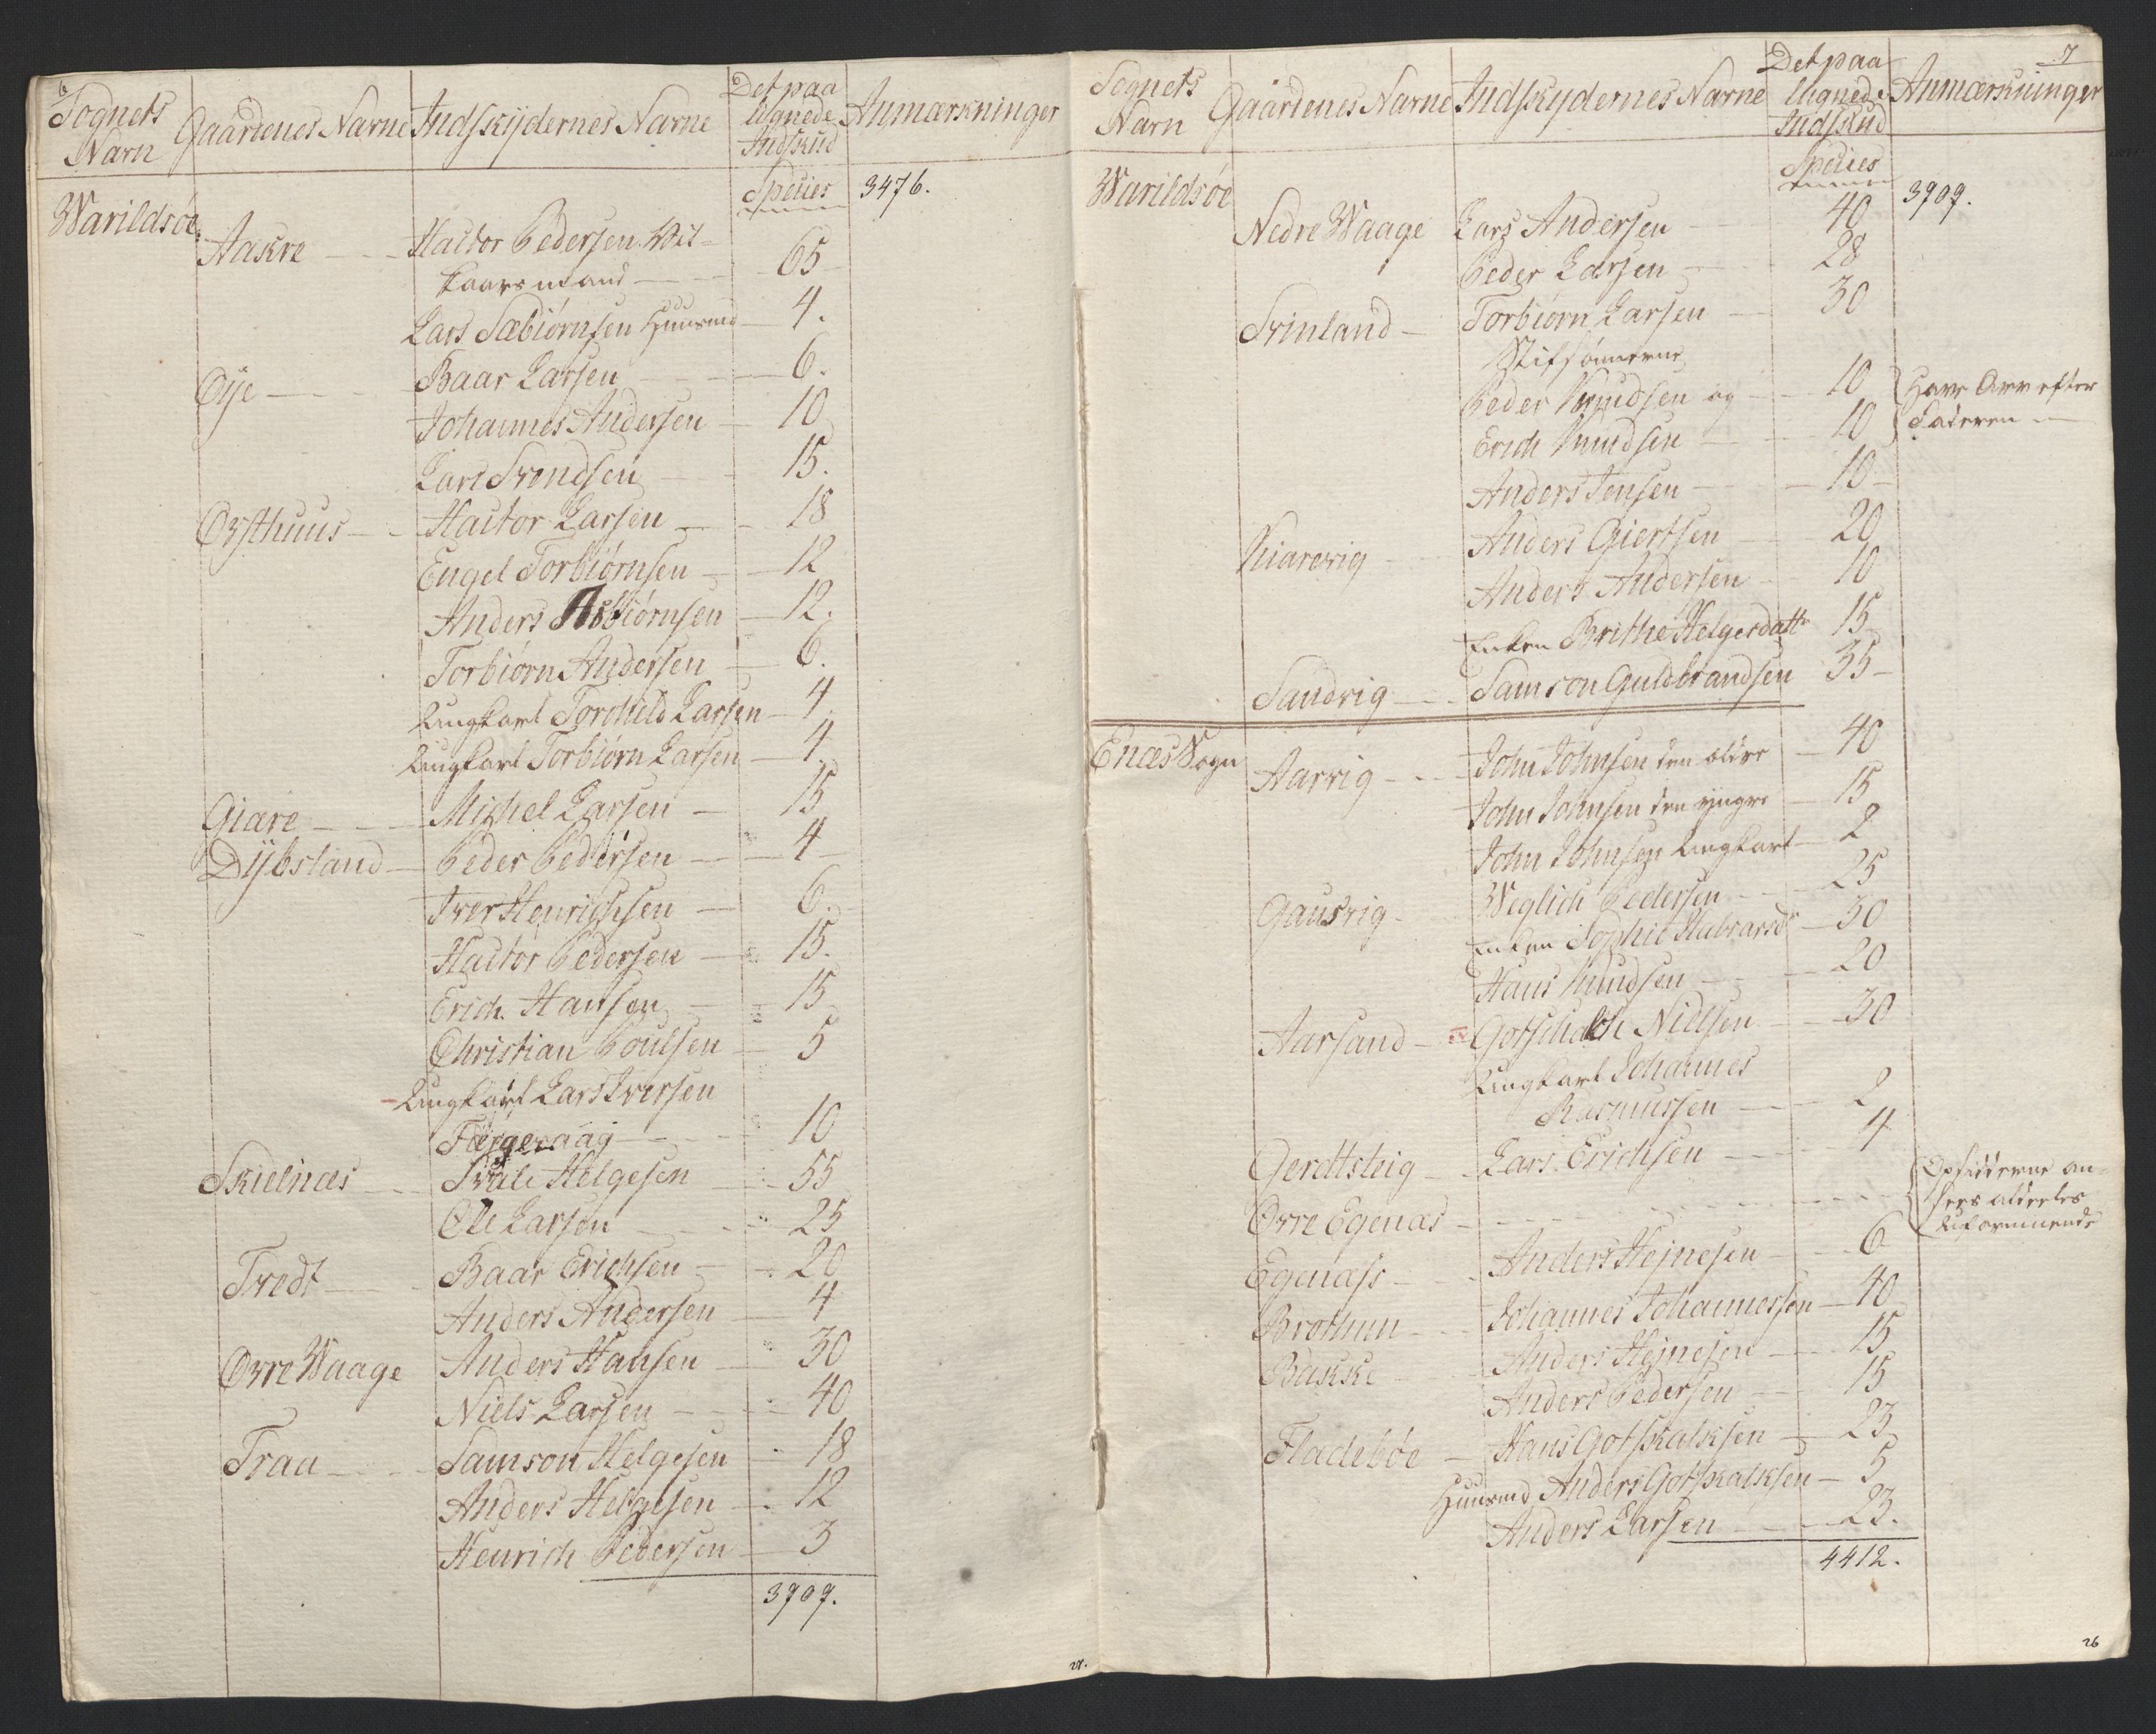 6
Sognets Navn Gaardenes Navne Indskydernes Navne Det paa lignede Indskud Anmærkninger
Species 3476.
Warildsøe
Aakre Hactor Pedersen Vil-
kaarsmand 65
Lars Sæbiørnsen Huusmd 4.
Øije Baar Larsen 6.
Johannes Andersen 10
Lars Svendsen 15.
Ørsthuus Hactor Larsen 18
Engel Torbiørnsen 12
Anders Asbiørnsen 12.
Torbiørn Andersen 6.
Ungkarl Torchild Larsen 4.
Ungkarl Torbiørn Larsen 4
Giære Michel Larsen 15
Dybsland Peder Pedersen 4
Iver Henrichsen 6.
Hactor Pedersen 15.
Erich Hansen 15
Christian Poulsen 5
Ungkarl Lars Iversen
Færgevaag 10
Skielnæs Svale Helgesen 55
Ole Larsen 25
Tvedt Baar Erichsen 20
Anders Andersen 4
Øvre Waage Anders Hansen 30
Niels Larsen 40
Traa Samson Helgesen 18
Anders Helgesen 12
Henrich Pedersen 3
3909.
7
Sognets Navn Gaardenes Navne Indskydernes Navne Det paa lignede Indskud Anmærkninger
Species 3909.
Warildsøe
Nedre Waage Lars Andersen 40
Peder Larsen 28
Svinland Torbiørn Larsen 30
Stifsønnerne
Peder Knudsen og 10 Have Arv efter
Erich Knudsen 10 Faderen
Anders Jensen 10
Kiærevig Anders Giertsen 20
Anders Andersen 10
Enken Brithe Helgesdattr 15
Sandvig Samson Guldbrandsen 35
Enæs Sogn
Aarvig John Johnsen den ældre 40
John Johnsen den yngre 15
John Johnsen Ungkarl 2
Gausvig Weglich Pedersen 25
Enken Sophie Halvarsdr 30
Hans Knudsen 20
Aarsand Gotschalch Nielsen 30
Ungkarl Johannes
Rasmussen 2
Gerdtsteig Lars Erichsen 4
Øvre Egenæs Opsidderne an-
sees aldeeles
uformuende
Egenæss Anders Hejnesen 6
Brothun Johannes Johannessen 40
Bakke Anders Hejnesen 15
Anders Pedersen 15
Fladebøe Hans Gotskalksen 23
Huusmd Anders Gotskalksen 5
Anders Larsen 23.
4412.
26